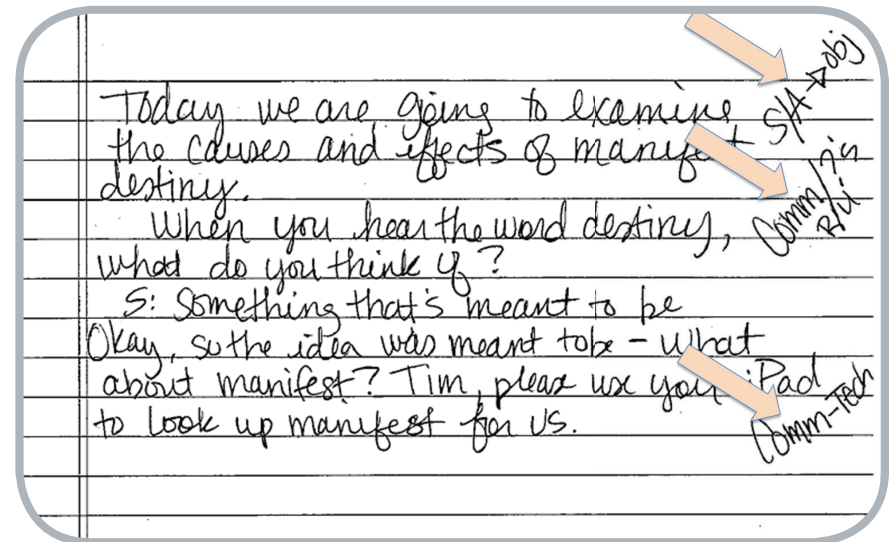 Today we are going to examine
S/A → obj
the causes and effects of manifest
destiny.
Comm/?'s
B/U
When you hear the word destiny,
what do you think of?
S: Something that's meant to be
Okay, so the idea was meant to be - What
about manifest? Tim, please use your iPad
Comm-Tech
to look up manifest for us.